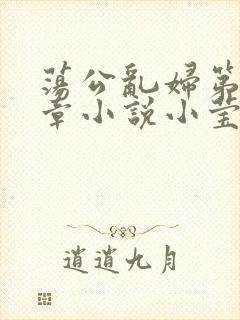 蕩公亂婦第
章小說小莹
逍遙九月